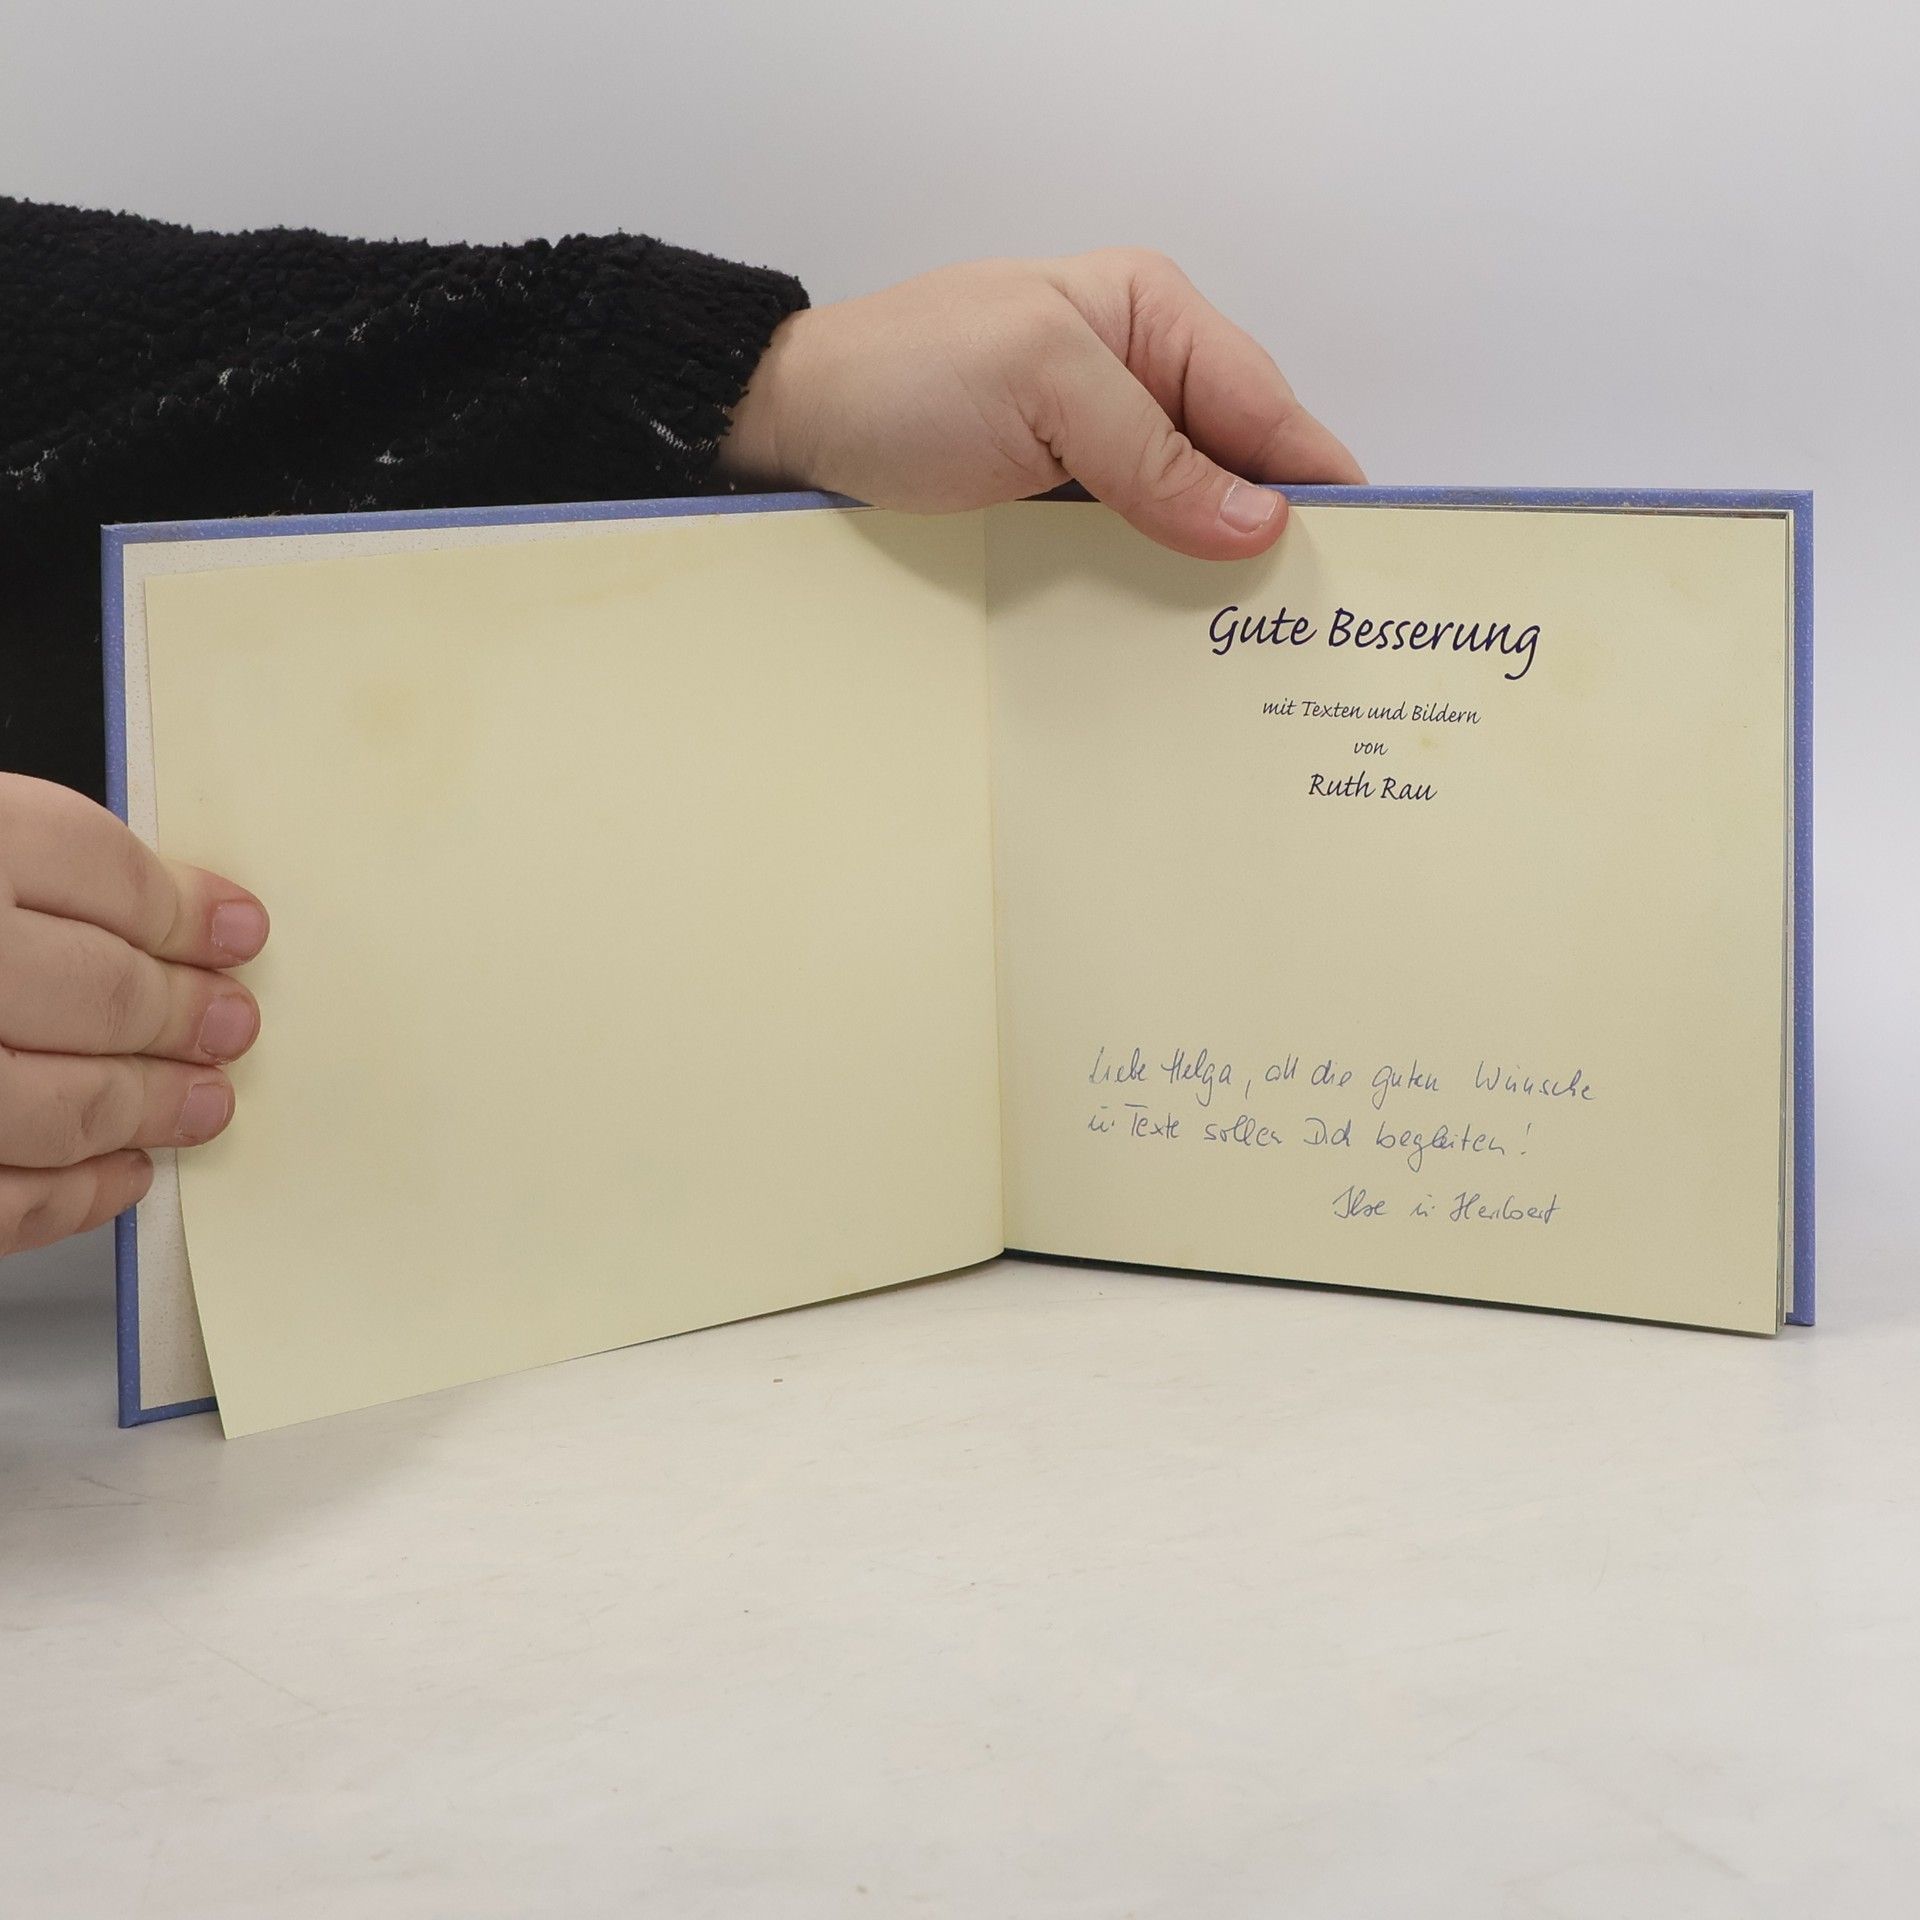 Gute Besserung
mit Texten und Bildern
von
Ruth Rau
Liebe Helga, all die guten Wünsche
u. Texte sollen Dich begleiten!
Ilse u. Heribert